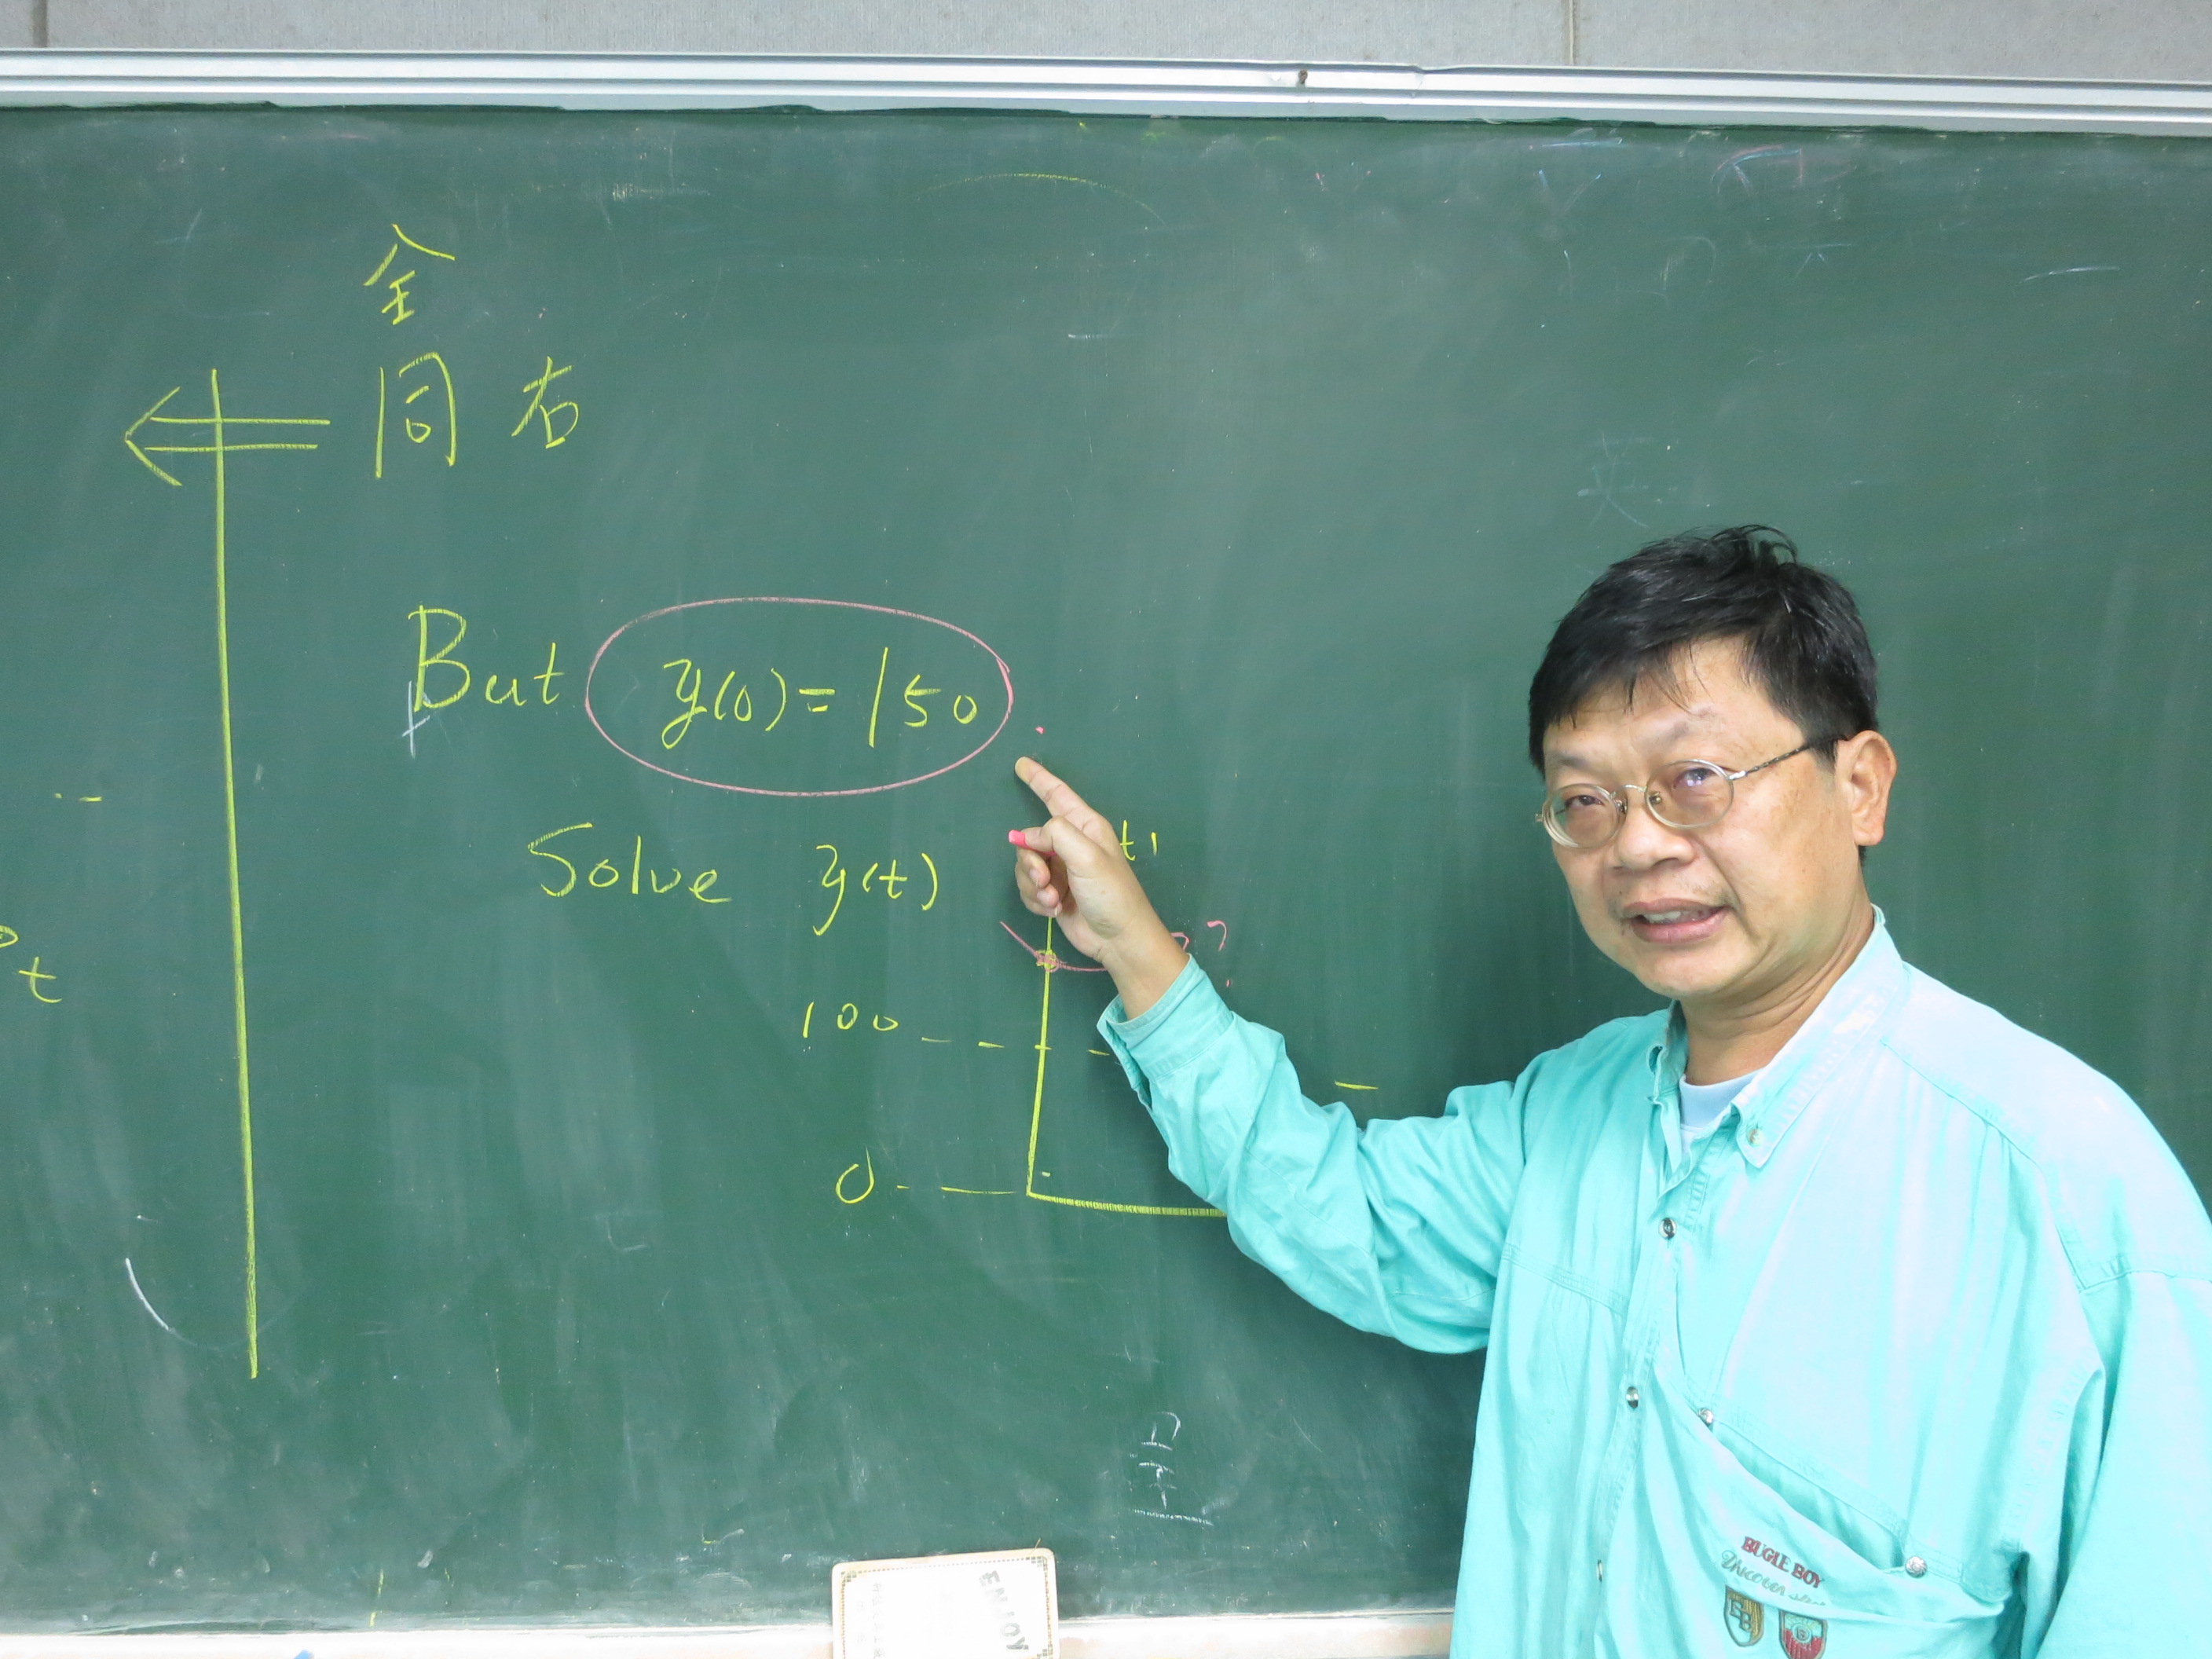 全
同右
But y(0) = 150
Solve y(t)
t
??
100
0
BUGLE BOY
EB
B
ENJOY